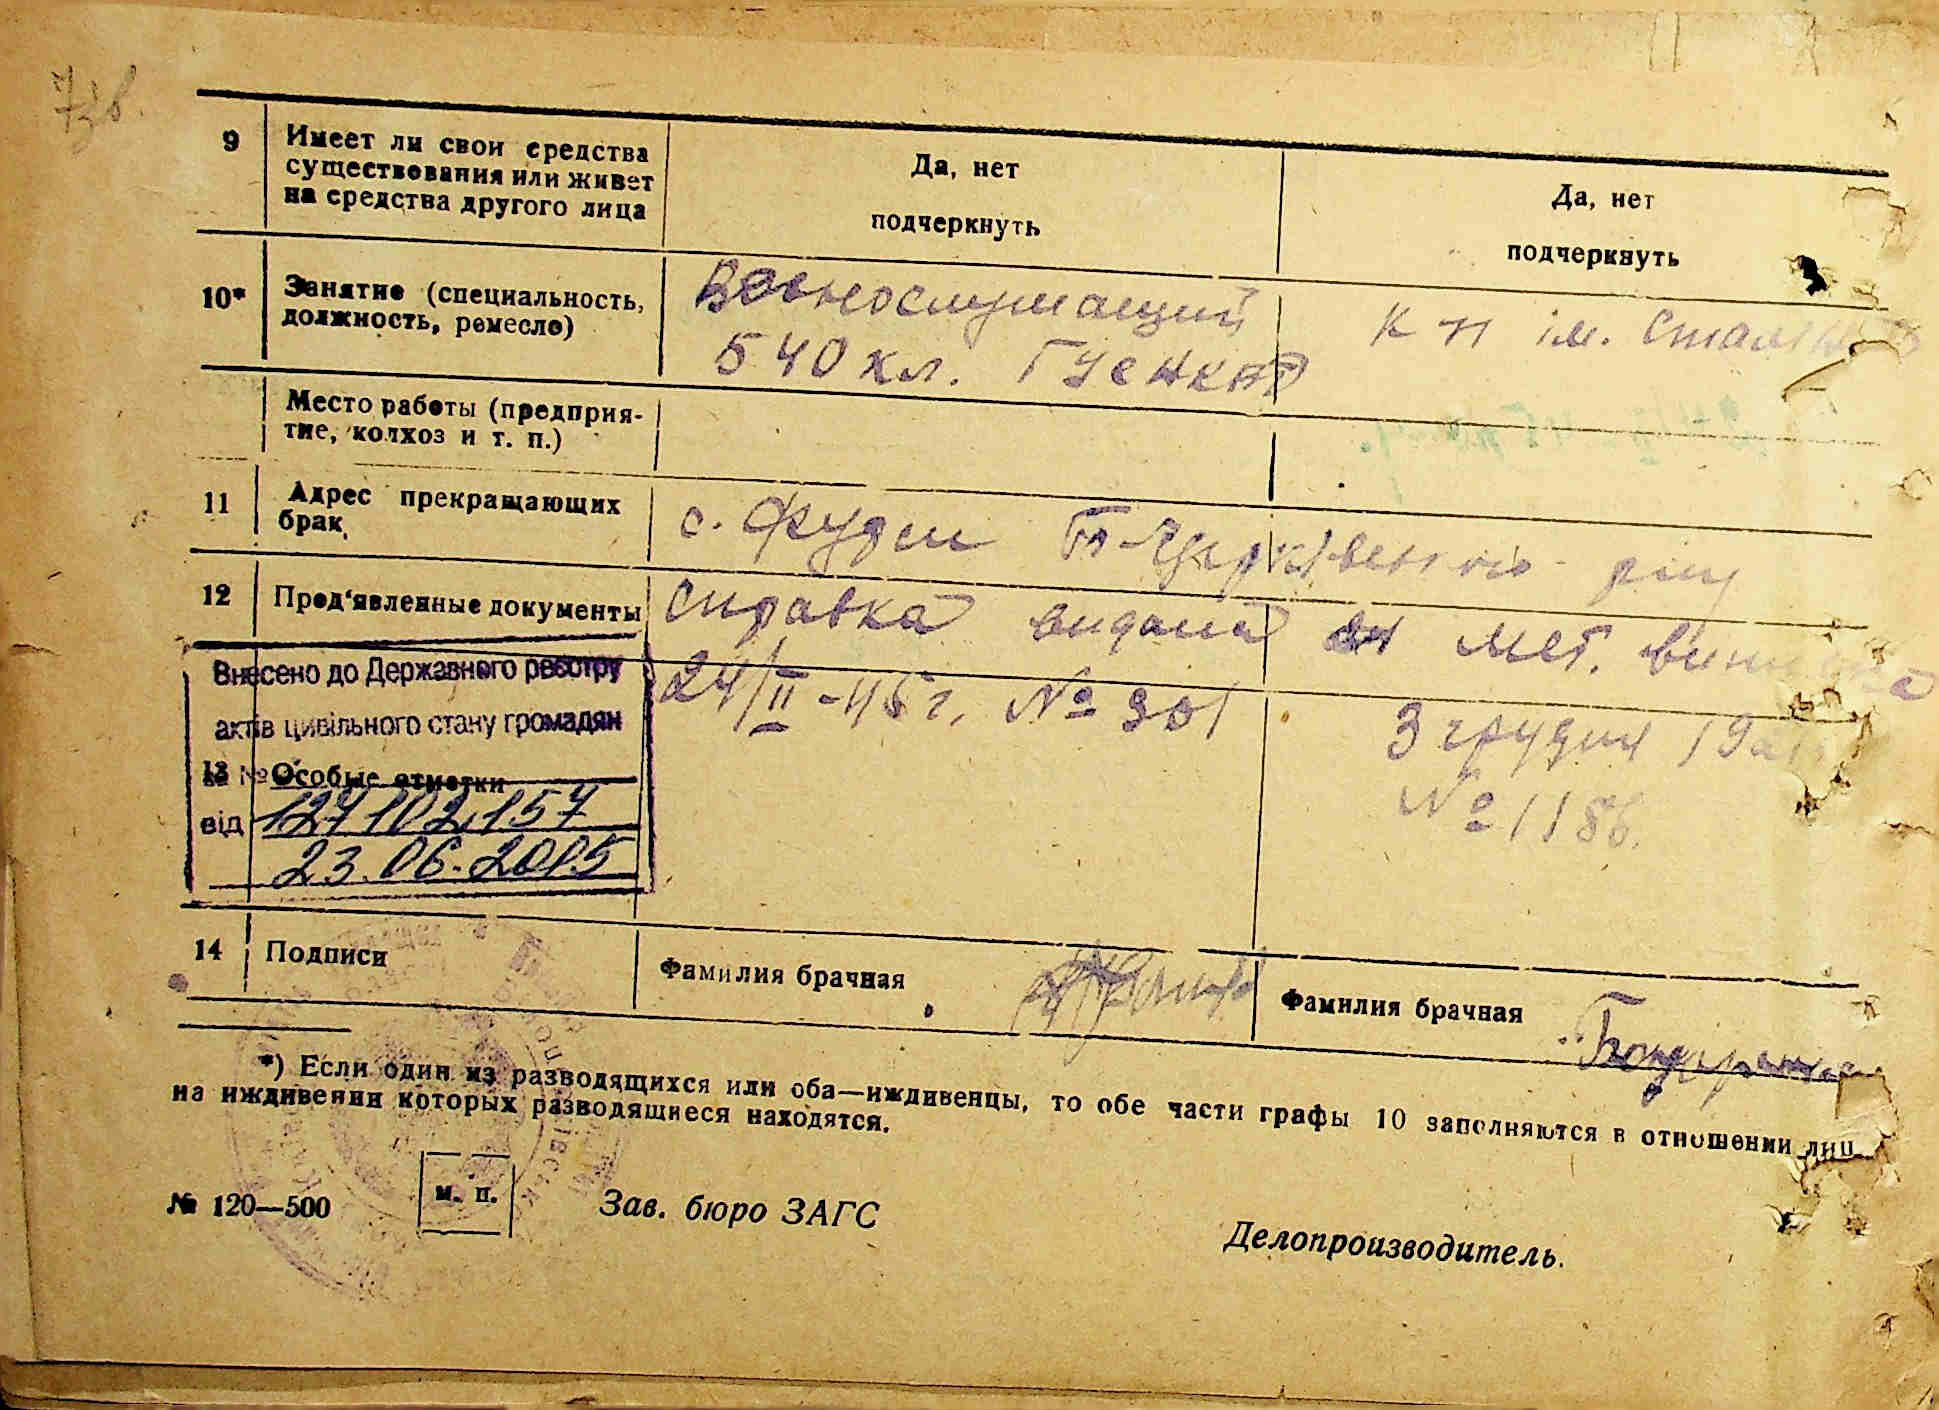 9
Имеет ли свои средства
существования или живет
на средства другого лица
Да, нет
подчеркнуть
Да, нет
подчеркнуть
10*
Занятие (специальность,
должность, ремесло)
Военнослужащий
540 кл.
к-п ім. Сталіна
Место работы (предприя-
тие, колхоз и т. п.)
11
Адрес прекращающих
брак
с.
12
Пред'явленные документы
Справка видана
24/II-45 г. № 301
3 грудня
№ 1186.
Внесено до Державного реєстру
актів цивільного стану громадян
за №
13
Особые отметки
від
127102157
23.06.2015
14
Подписи
Фамилия брачная
Фамилия брачная
*) Если один из разводящихся или оба—иждивенцы, то обе части графы 10 заполняются в отношении лиц
на иждивении которых разводящиеся находятся.
№ 120—500
м. п.
Зав. бюро ЗАГС
Делопроизводитель.